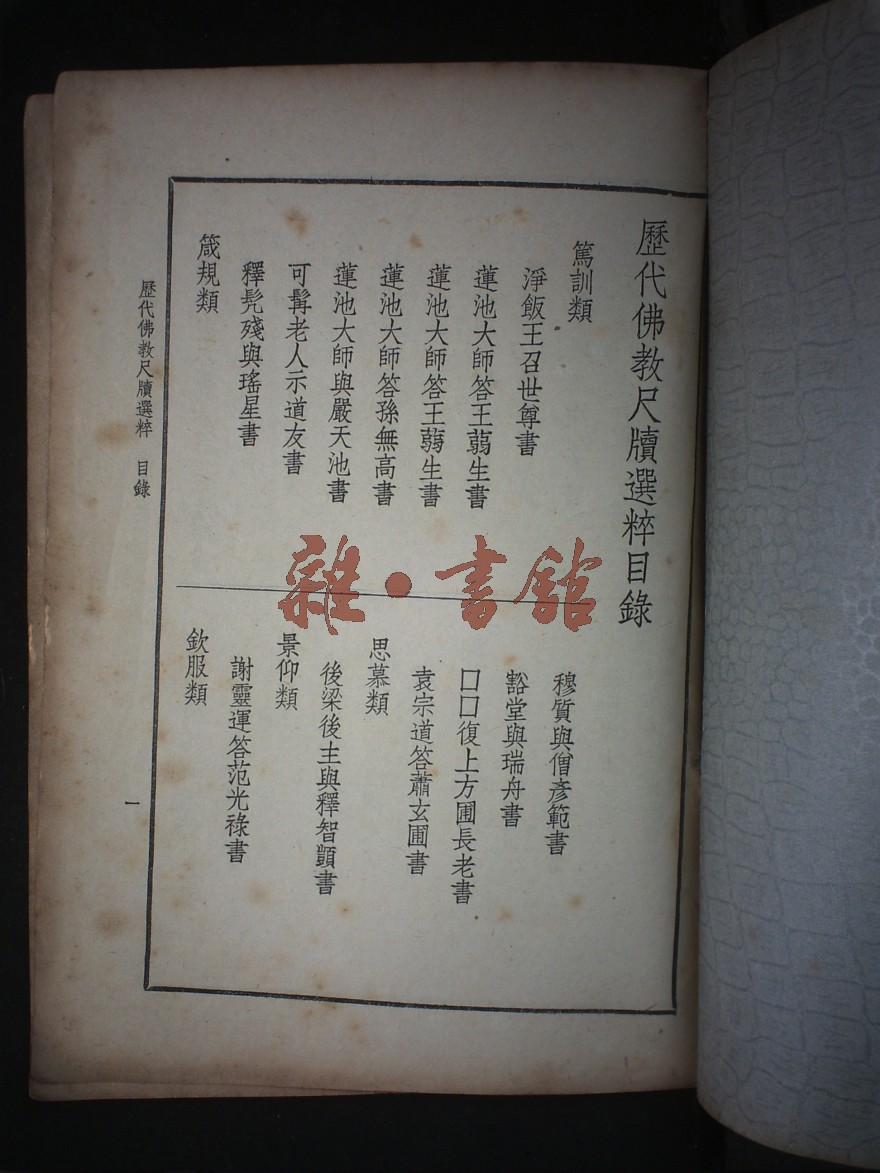 歷代佛教尺牘選粹目錄
篤訓類
淨飯王召世尊書
蓮池大師答王蒻生書
蓮池大師答王蒻生書
蓮池大師答孫無高書
蓮池大師與嚴天池書
可髯老人示道友書
釋髡殘與瑤星書
箴規類
穆質與僧彥範書
豁堂與瑞舟書
口口復上方圃長老書
袁宗道答蕭玄圃書
思慕類
後梁後主與釋智顗書
景仰類
謝靈運答范光祿書
欽服類
歷代佛教尺牘選粹 目錄
一
雜·書館